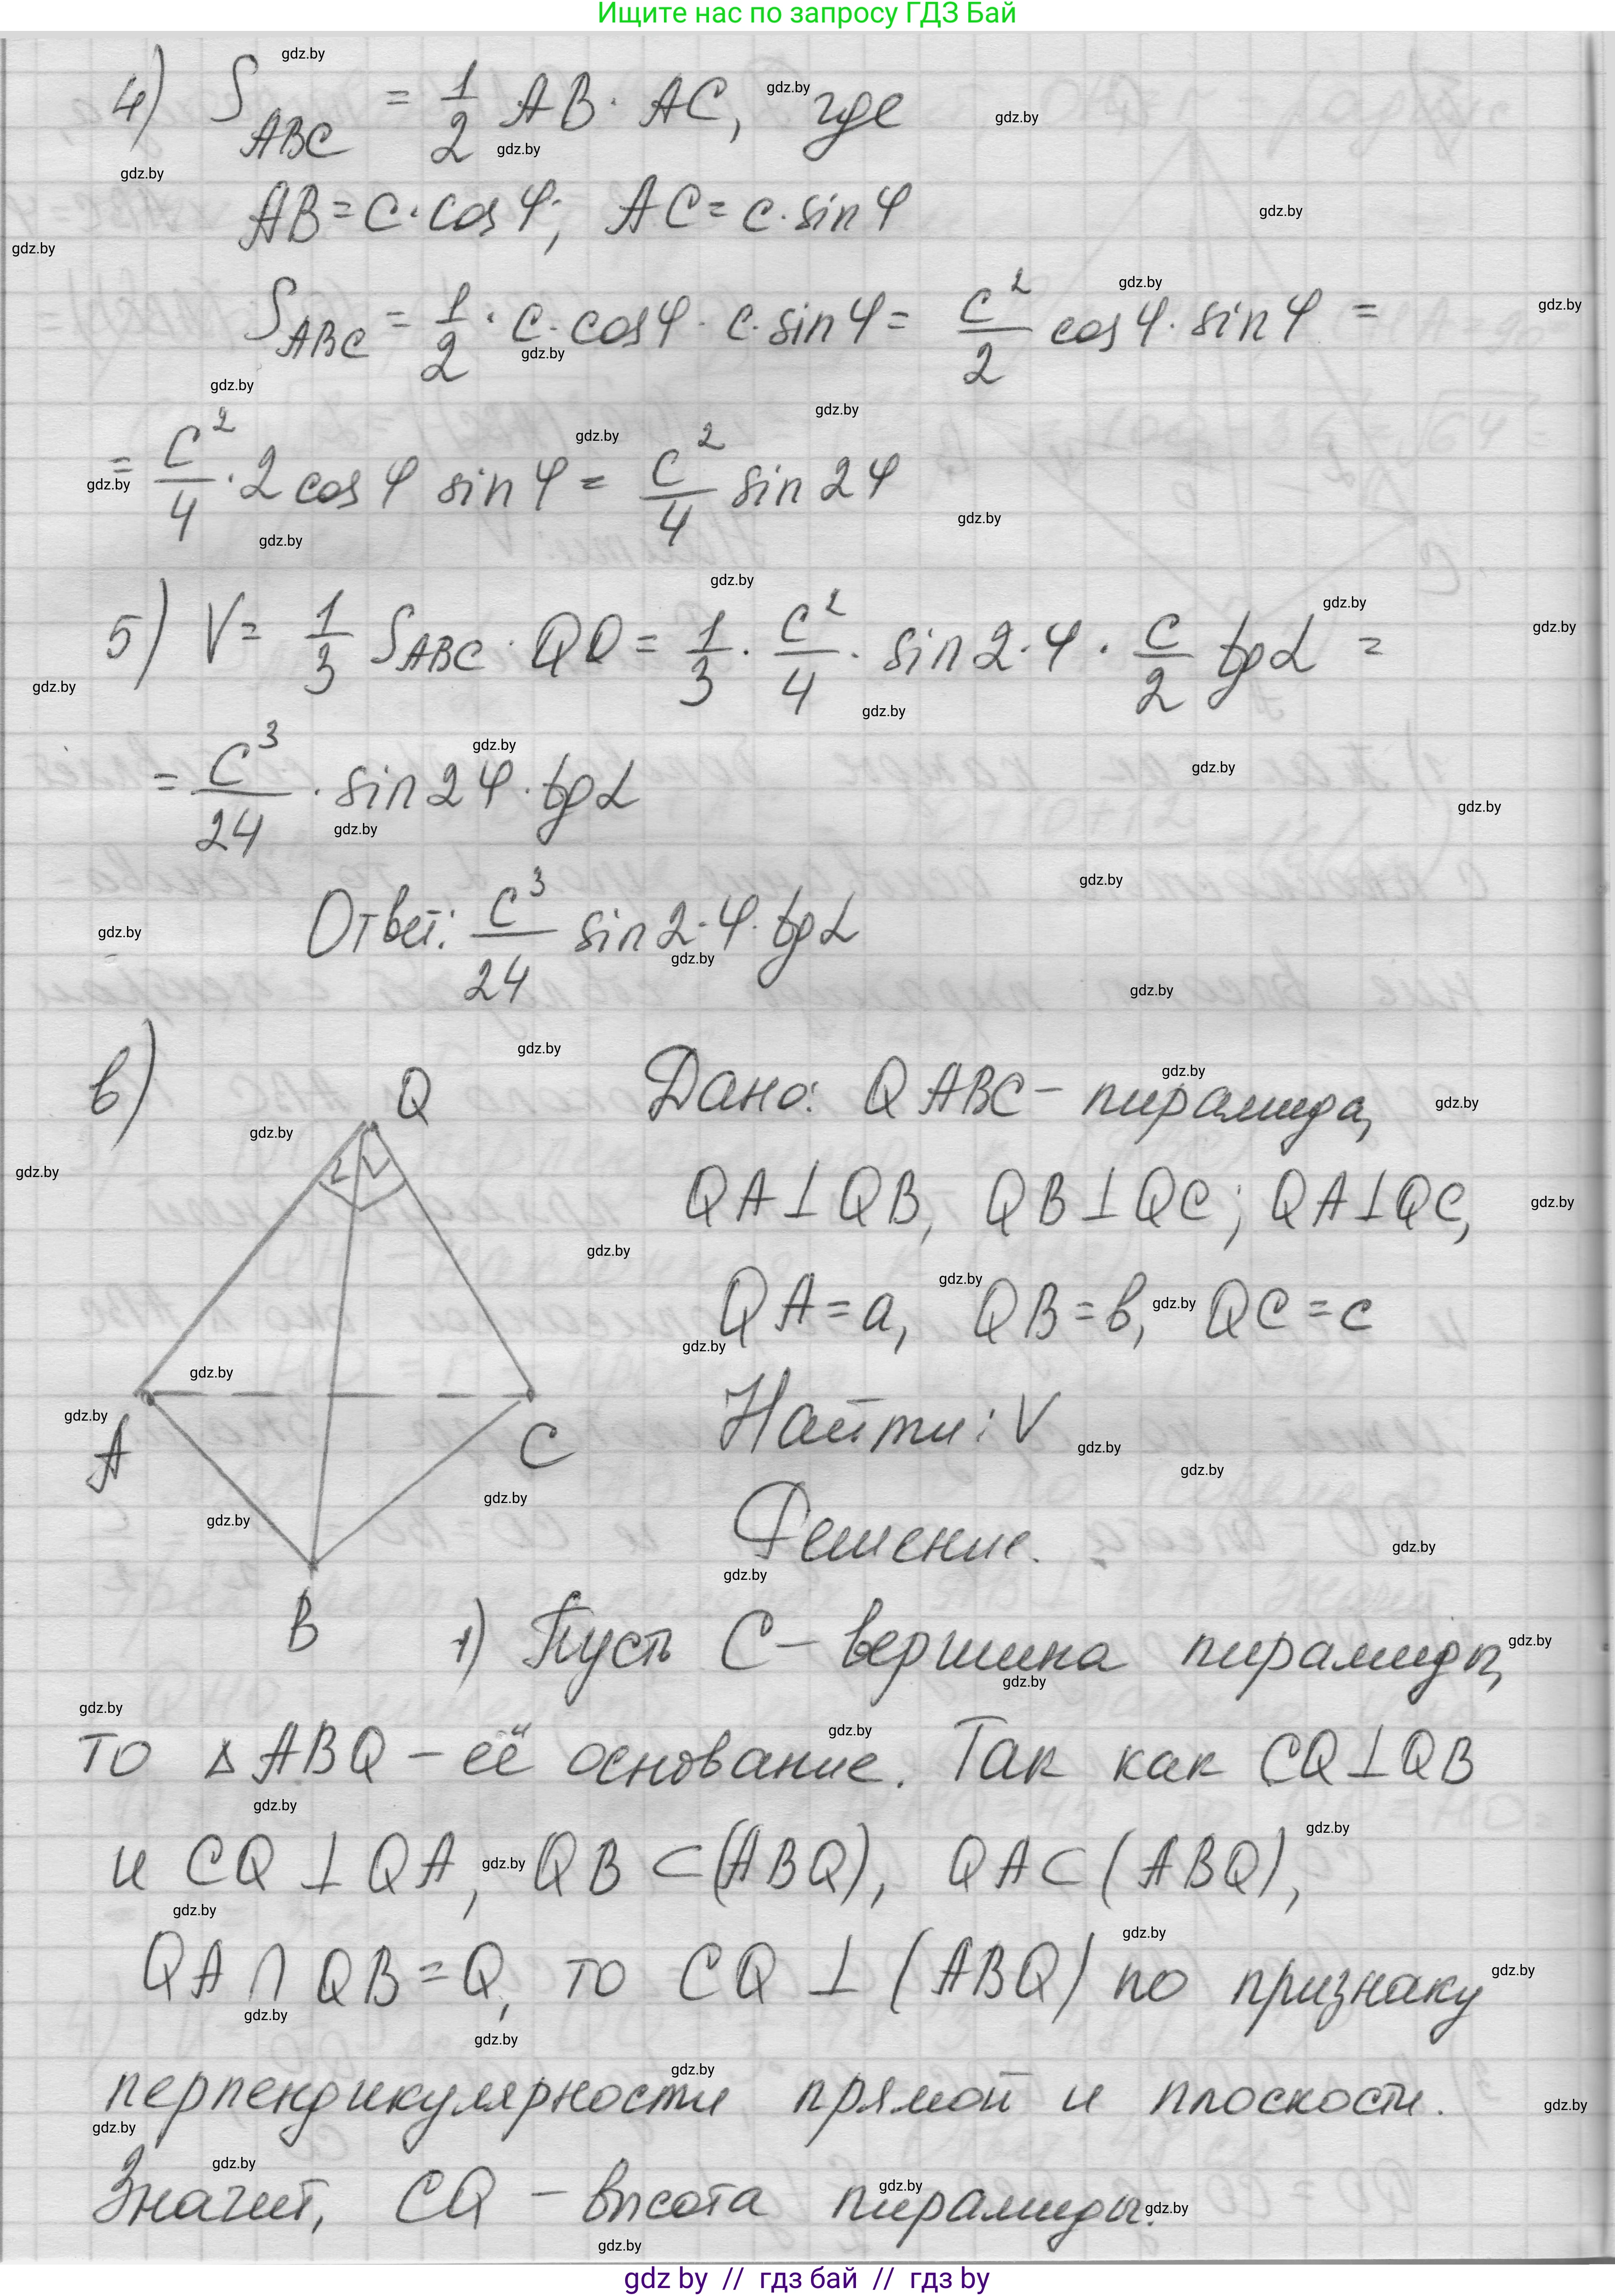 Ищите нас по запросу ГДЗ Бай
4) S_ABC = 1/2 AB · AC, где
AB = c · cos φ; AC = c · sin φ
S_ABC = 1/2 · c · cos φ · c · sin φ = c²/2 cos φ · sin φ =
= c²/4 · 2 cos φ sin φ = c²/4 sin 2φ
5) V = 1/3 S_ABC · QO = 1/3 · c²/4 · sin 2·φ · c/2 tg α =
= c³/24 · sin 2φ · tg α
Ответ: c³/24 sin 2·φ · tg α
в)
Q
A
C
B
Дано: QABC – пирамида,
QA⊥QB, QB⊥QC; QA⊥QC,
QA = a, QB = в, QC = c
Найти: V
Решение.
1) Пусть C – вершина пирамиды,
то ΔABQ – её основание. Так как CQ⊥QB
и CQ⊥QA, QB⊂(ABQ), QA⊂(ABQ),
QA∩QB=Q, то CQ⊥(ABQ) по признаку
перпендикулярности прямой и плоскости.
Значит, CQ – высота пирамиды.
gdz by // гдз бай // гдз by